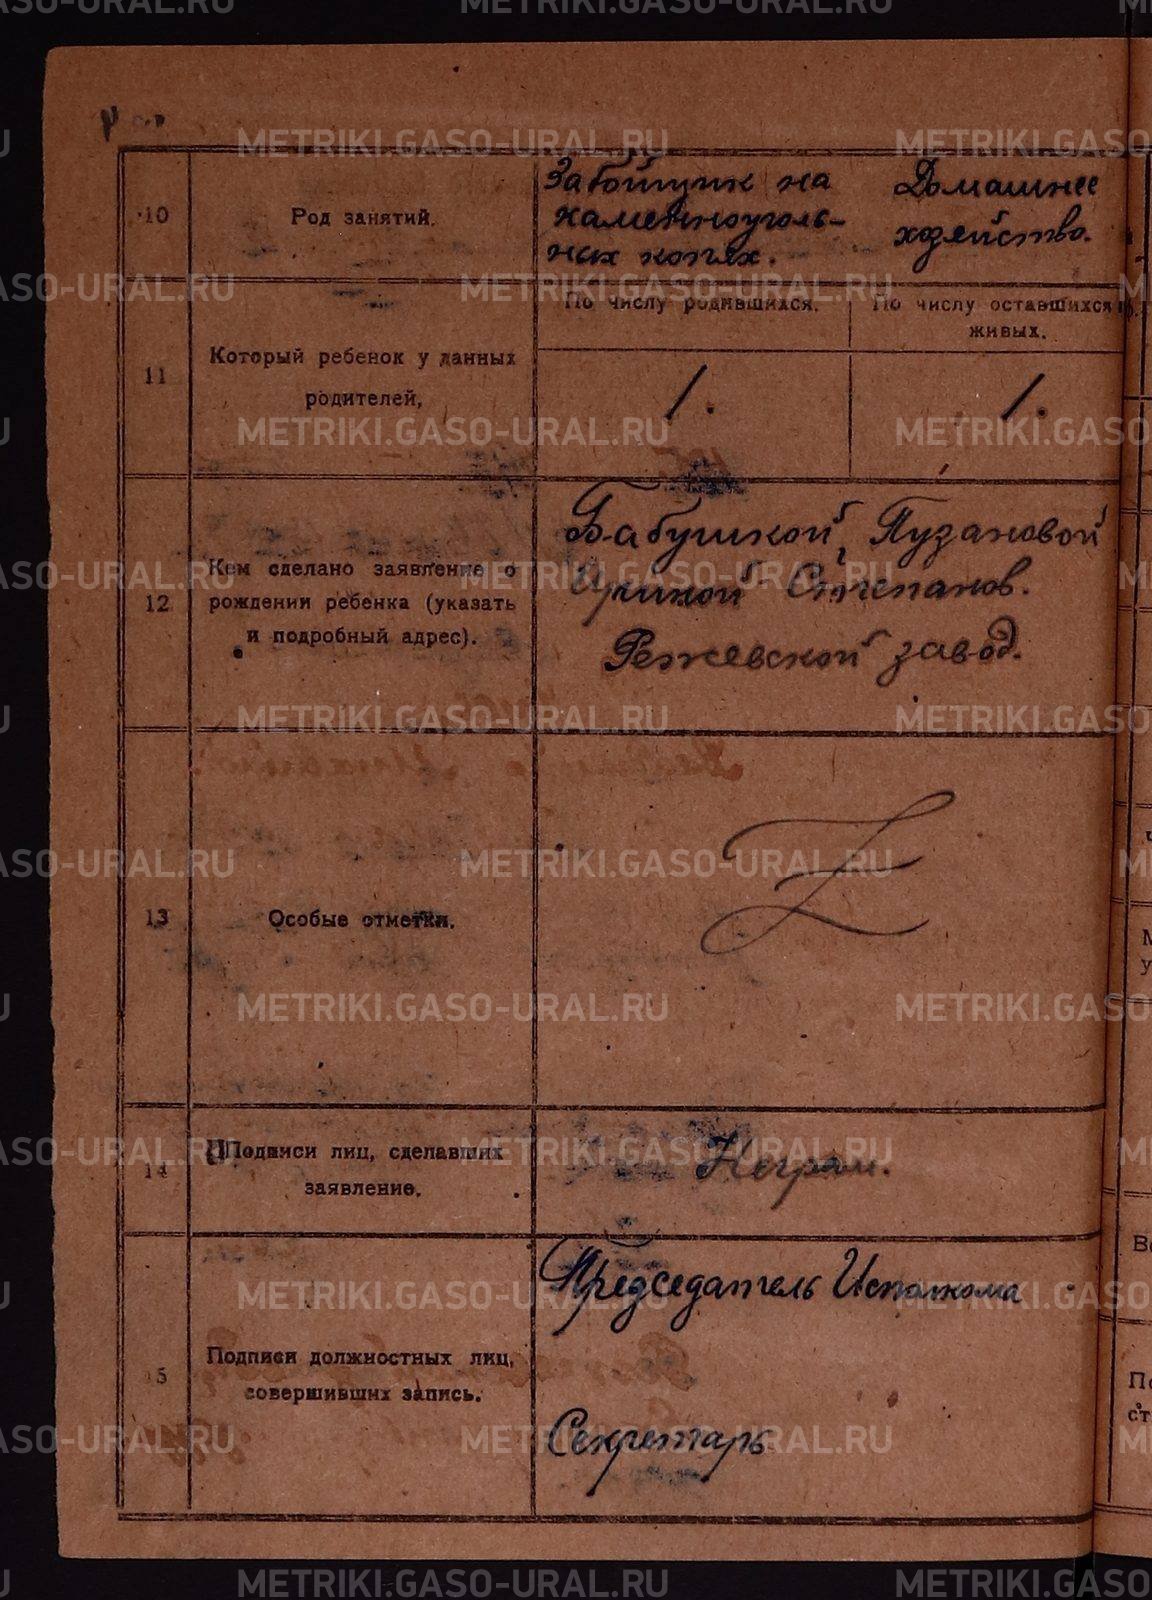 METRIKI.GASO-URAL.RU
10
Род занятий.
Забойщик на
каменноуголь-
ных копях.
Домашнее
хозяйство.
11
Который ребенок у данных
родителей,
По числу родившихся.
По числу оставшихся
живых.
1.
1.
12
Кем сделано заявление о
рождении ребенка (указать
и подробный адрес).
Бабушкой, Пузановой
Ириной Степанов.
Режевской завод.
13
Особые отметки.
Z
14
Подписи лиц, сделавших
заявление.
Неграм.
15
Подписи должностных лиц,
совершивших запись.
Председатель Исполкома
Секретарь